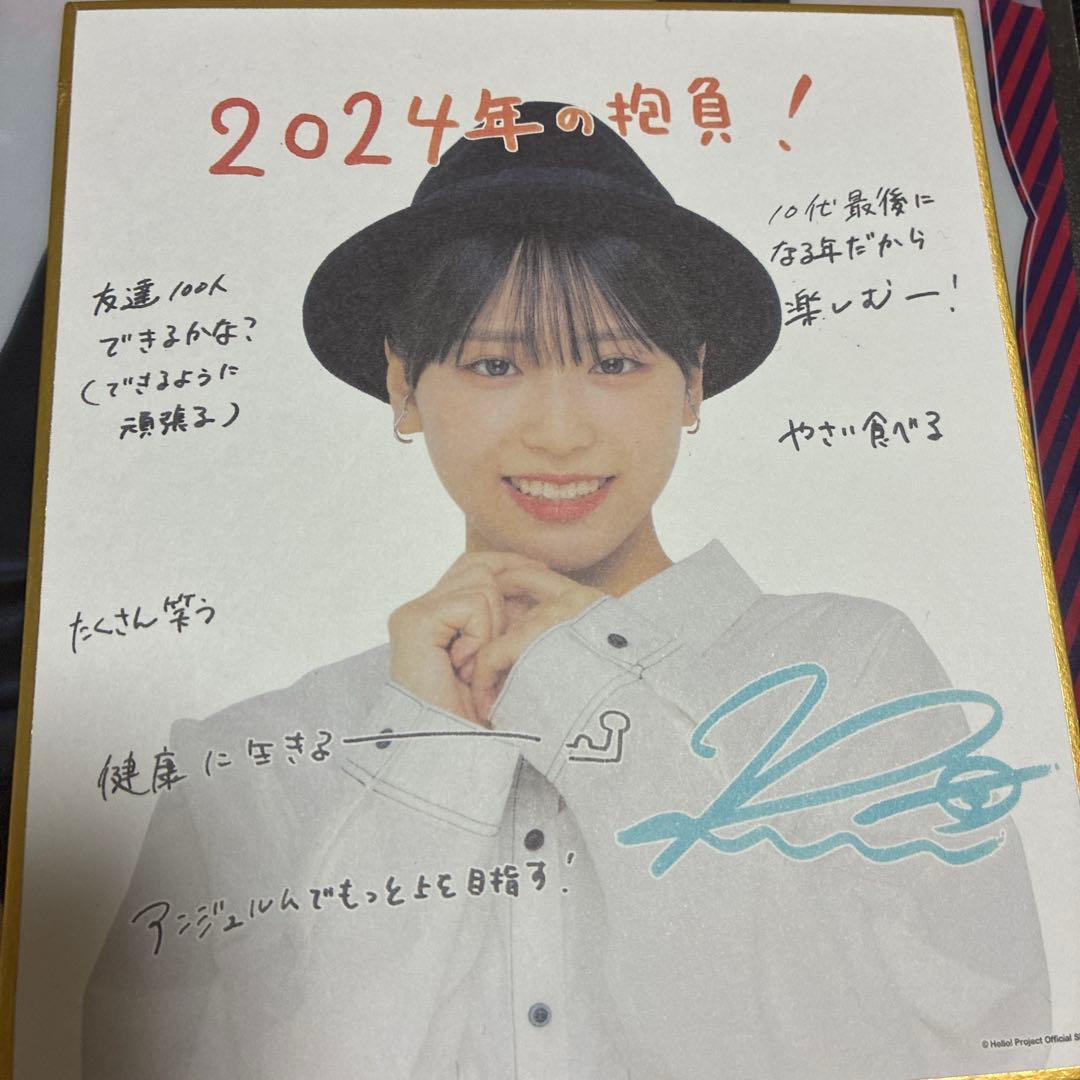 2024年の抱負!
10代最後に
なる年だから
楽しむー!
友達100人
できるかな?
(できるように
頑張る)
やさい食べる
たくさん笑う
健康に生きる
アンジュルムでもっと上を目指す!
© Hello! Project Official